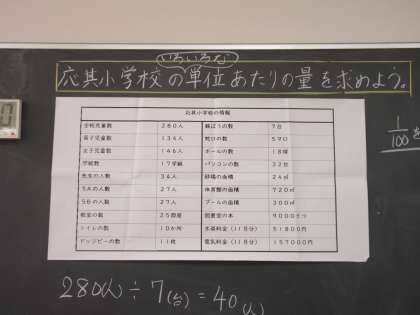 いろいろな
応其小学校の単位あたりの量を求めよう。
応其小学校の情報
全校児童数 280人 跳びばこの数 7台
男子児童数 134人 蛇口の数 59口
女子児童数 146人 ボールの数 18個
学級数 17学級 パソコンの数 32台
先生の人数 34人 砂場の面積 24㎡
5Aの人数 27人 体育館の面積 720㎡
5Bの人数 27人 プールの面積 300㎡
教室の数 25部屋 図書室の本 9000さつ
トイレの数 10か所 水道料金(1日分) 51800円
ドッジビーの数 11枚 電気料金(1日分) 157000円
1/100
280(人)÷7(台)=40(人)